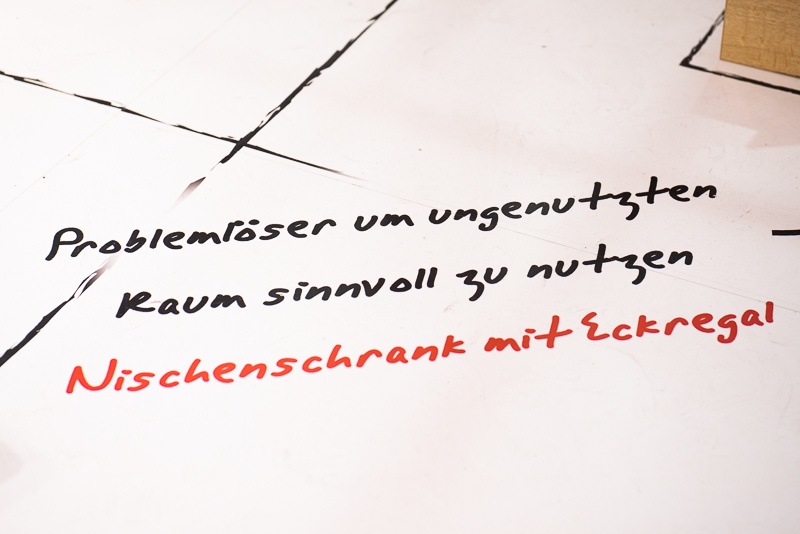 Problemlöser um ungenutzten
Raum sinnvoll zu nutzen
Nischenschrank mit Eckregal